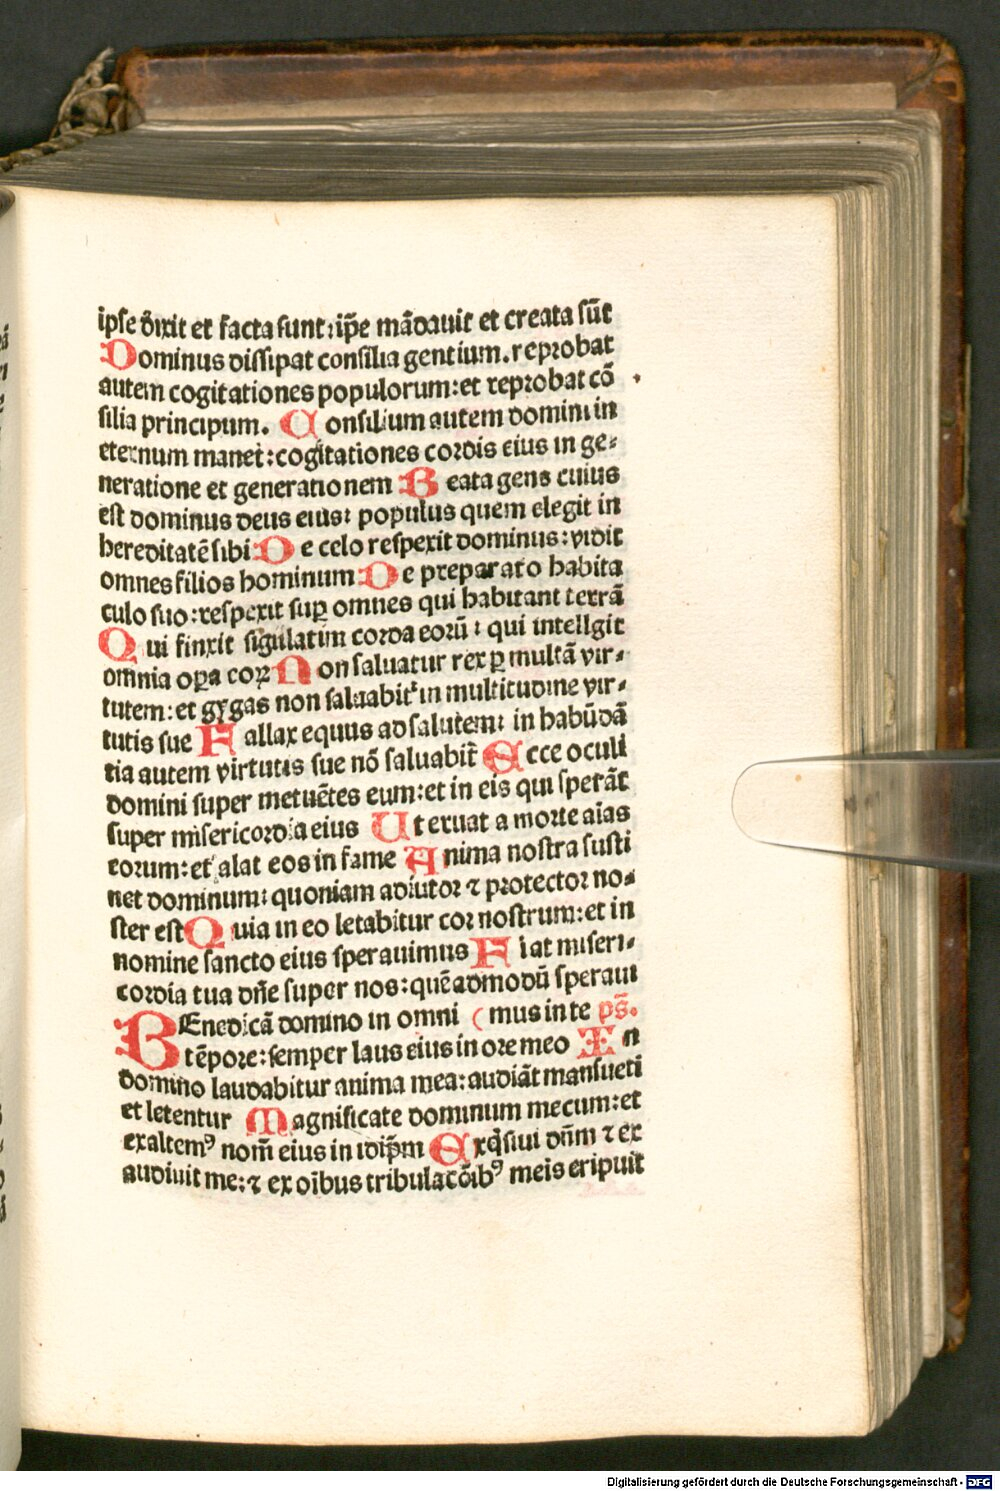 ipse dixit et facta sunt: ip̄e mādauit et creata sūt
Dominus dissipat consilia gentium. reprobat
autem cogitationes populorum: et reprobat cō
silia principum. Consilium autem domini in
eternum manet: cogitationes cordis eius in ge⸗
neratione et generationem Beata gens cuius
est dominus deus eius: populus quem elegit in
hereditatē sibi De celo respexit dominus: vidit
omnes filios hominum De preparato habita
culo suo: respexit suꝑ omnes qui habitant terrā
Qui finxit sigillatim corda eorū: qui intellgit
omnia oꝑa coꝝ Non saluatur rex ꝑ multā vir⸗
tutem: et gygas non saluabit᷑ in multitudine vir⸗
tutis sue Fallax equus ad salutem: in habūdā
tia autem virtutis sue nō saluabit᷑ Ecce oculi
domini super metuētes eum: et in eis qui sperāt
super misericordia eius Ut eruat a morte aīas
eorum: et alat eos in fame Anima nostra susti
net dominum: quoniam adiutor ⁊ protector no⸗
ster est Quia in eo letabitur cor nostrum: et in
nomine sancto eius sperauimus Fiat miseri⸗
cordia tua dn̄e super nos: quēadmodū speraui
BEnedicā domino in omni ( mus in te ps̄.
tēpore: semper laus eius in ore meo In
domino laudabitur anima mea: audiāt mansueti
et letentur Magnificate dominum mecum: et
exaltemꝰ nom̄ eius in idip̄m Exq̄siui dn̄m ⁊ ex
audiuit me: ⁊ ex oībus tribulatōibꝰ meis eripuit
Digitalisierung gefördert durch die Deutsche Forschungsgemeinschaft - DFG